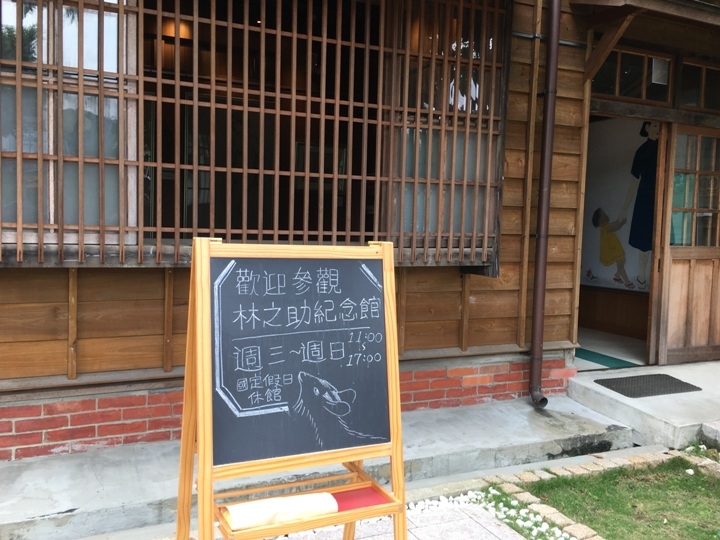 歡迎參觀
林之助紀念館
週三~週日 11:00
17:00
國定假日
休館